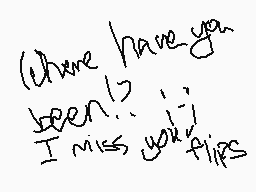 Where have you
been!? ;-;
I miss your flips